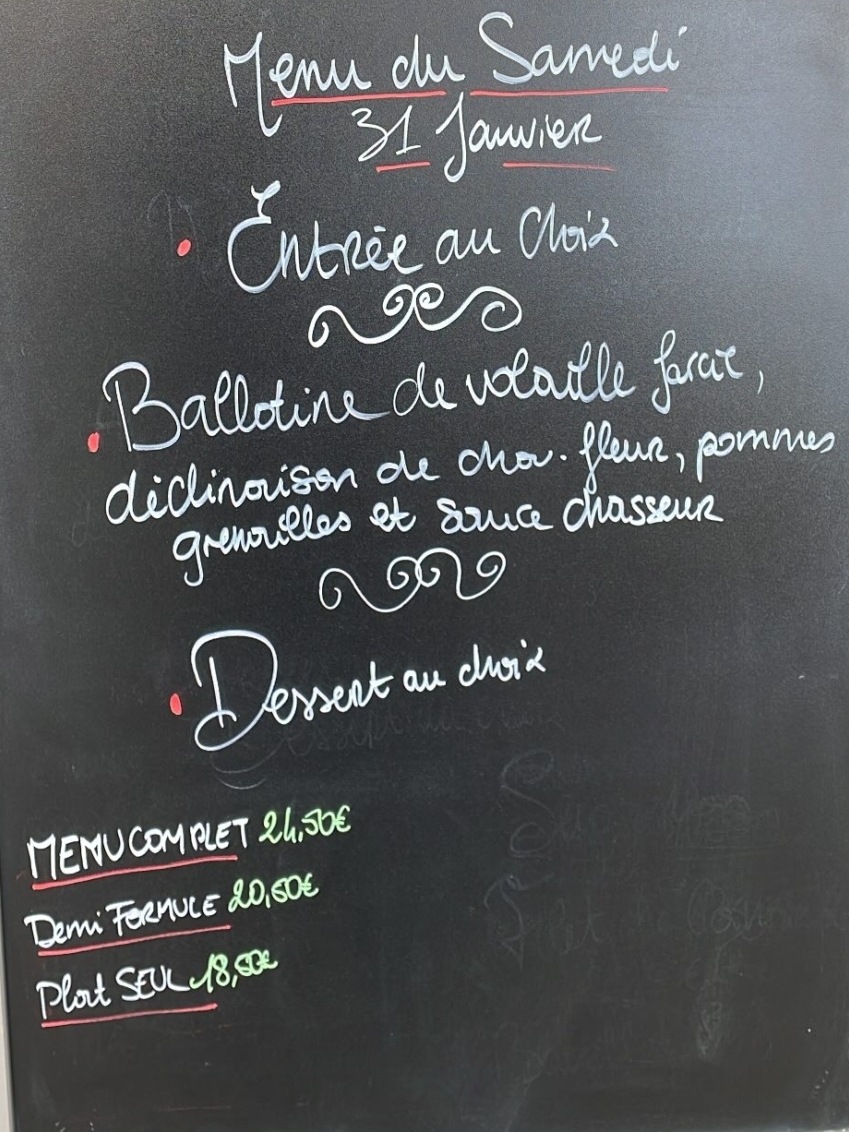 Menu du Samedi
31 Janvier
Entrée au Choix
Ballotine de volaille farcie,
déclinaison de chou-fleur, pommes
grenailles et sauce chasseur
Dessert au choix
MENU COMPLET 24,50€
Demi FORMULE 20,50€
Plat SEUL 18,50€